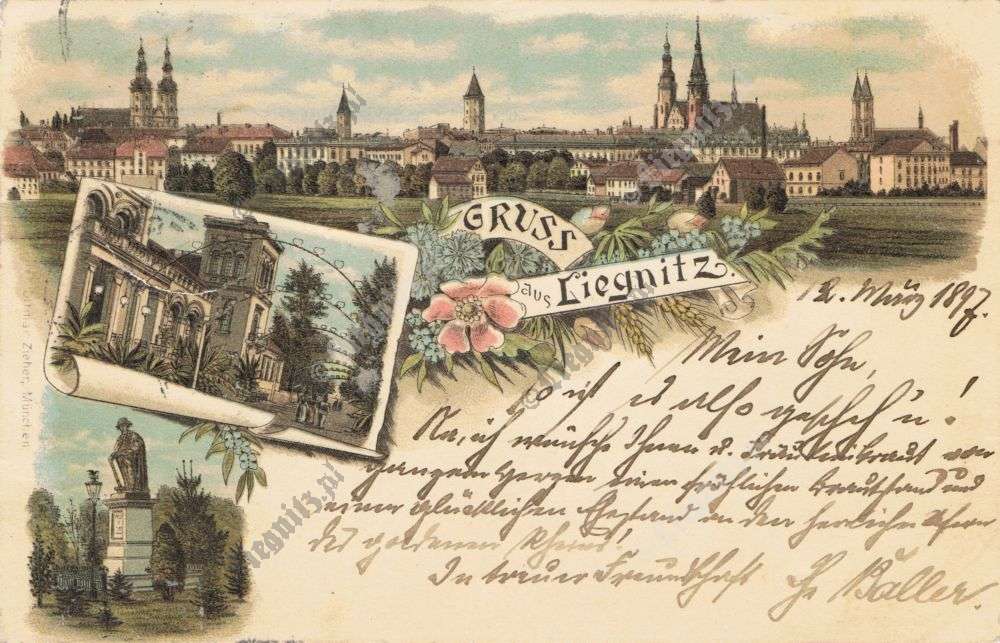 GRUSS
aus Liegnitz.
12. März 1897.
Mein Sohn,
so ist es also geschehn!
Na, ich wünsche Ihnen u. Fräulein Braut von
ganzem Herzen einen fröhlichen Brautstand und
einen glücklichen Ehestand an den herrlichen Ufern
des goldenen Rheins!
In treuer Freundschaft
Baller.
Zieher, München
liegnitz.pl